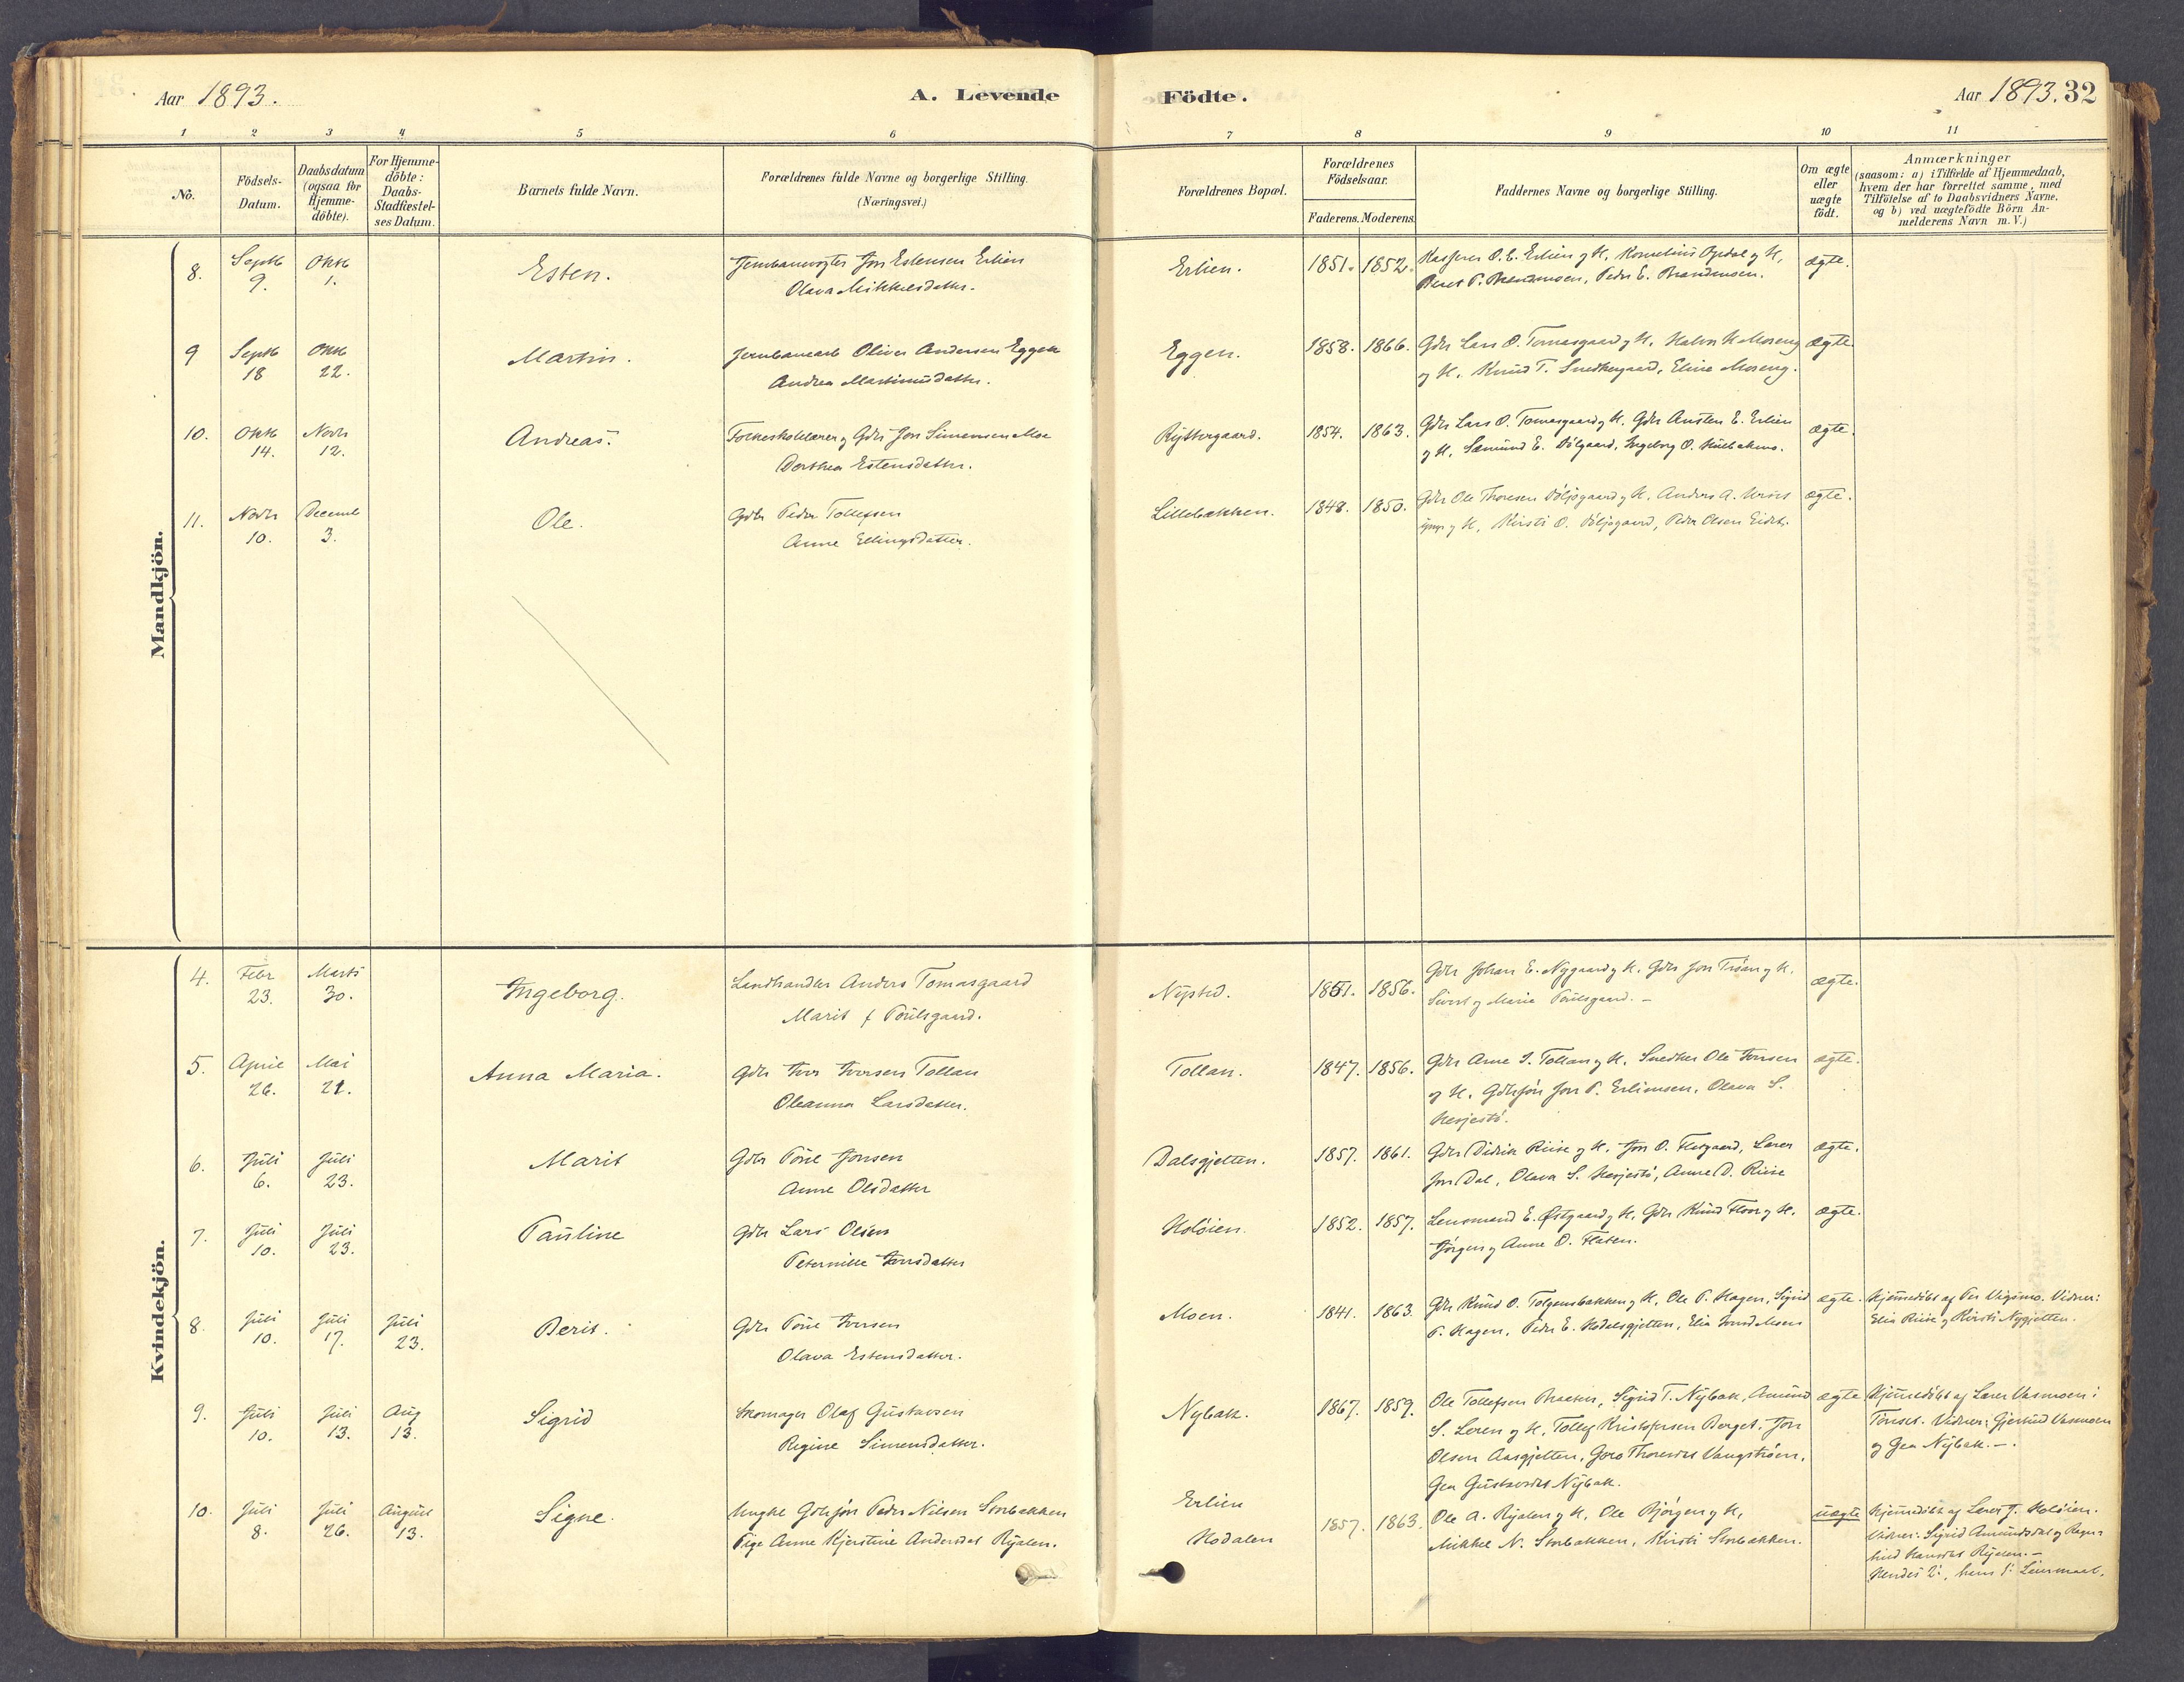 Aar 1893.
A. Levende
Födte.
Aar 1893. 32
1 2 3 4 5 6 7 8 9 10 11
No.
Födsels-
Datum.
Daabsdatum
(ogsaa for
Hjemme-
döbte).
For Hjemme-
döbte:
Daabs-
Stadfæstel-
ses Datum.
Barnets fulde Navn.
Forældrenes fulde Navne og borgerlige Stilling.
(Næringsvei.)
Forældrenes Bopæl.
Forældrenes
Födselsaar.
Faderens. Moderens.
Faddernes Navne og borgerlige Stilling.
Om ægte
eller
uægte
födt.
Anmærkninger
(saasom: a) i Tilfælde af Hjemmedaab,
hvem der har forrettet samme, med
Tilföielse af to Daabsvidners Navne.
og b) ved uægtefödte Börn An-
melderens Navn m. V.)
Mandkjön.
8. Septb 9. Oktb 1. Esten.
Jernbanevogter Jon Estensen Erlien
Olava Mikkelsdatter.
Erlien. 1851. 1852.
Kasserer O. E. Erlien og H, Kornelius Opdal og H,
Beret P. Brændmoen, Peder E. Brændmoen.
ægte.
9 Septb 18 Oktb 22. Martin.
Jernbanearb Oliver Andersen Eggen
Andrea Martinusdatter.
Eggen. 1858. 1866.
Gbr Lars O. Tomasgaard og H. Halvor H Moreng
og H. Knud T. Snedkergaard, Eline Moreng.
ægte.
10. Oktb 14. Novbr 12. Andreas.
Folkeskolelærer og Gbr Jon Simensen Moe
Dorthea Estensdatter.
Ryttergaard. 1854. 1863.
Gbr Lars O. Tomasgaard og H. Gbr Austen E. Erlien
og H. Sæmund E. , Ingeborg O.
ægte.
11. Novbr 10. Decemb 3. Ole.
Gbr Peder Tollefsen
Anne Ellingsdatter.
Lillebakken. 1848. 1850.
Gbr Ole Thoresen og H. Anders A.
og H, Kirsti O. , Peder Olsen Eidet.
ægte.
Kvindekjön.
4. Febr 23. Marts 30. Ingeborg.
Landhandler Anders Tomasgaard
Marit f Poulsgaard.
Nysted. 1851. 1856.
Gbr Johan E. Nygaard og H. Gbr Jon Trøan og H.
Sivert og Marie Poulsgaard. –
ægte.
5. April 26. Mai 21. Anna Maria.
Gbr Iver Iversen Tollan
Oleanna Larsdatter.
Tollan. 1847. 1856.
Gbr Arne I. Tollan og H. Snedker Ole Iversen
og H. Gbrsøn Jon P. Erlimoen, Olava S.
Hesjestø.
ægte.
6. Juli 6. Juli 23. Marit
Gbr Poul Jonsen
Anne Olsdatter
Dalsgjetten. 1857. 1861.
Gbr Didrik Riise og H. Jon O. Flesgaard, Lærer
Jon Dal, Olava S. Hesjestø, Anne D. Riise
ægte.
7. Juli 10. Juli 23. Pauline
Gbr Lars Olsen
Peternille Iversdatter
Holøien. 1852. 1857.
Lensmand E. Østgaard og H. Gbr Knud Floor og H.
Jørgen og Anne O. Flaten.
ægte.
8. Juli 10. Juli 17. Juli 23. Berit.
Gbr Poul Iversen
Olava Estensdatter.
Moen. 1841. 1863.
Gbr Knud O. Tolgensbakken og H. Ole P. Hagen, Sigrid
P. Hagen, Peder E. Hodalsgjetten, Elia Moen
ægte.
Hjemmedøbt af Per Vigsmo. Vidner:
Elis Riise og Kirsti Nygjetten.
9. Juli 10. Juli 13. Aug 13. Sigrid
Skomager Olaf Gustavsen
Regine Simensdatter.
Nybak. 1867. 1859.
Ole Tollefsen Bakken, Sigrid T. Nybak, Amund
S. Loren og H. Tollef Kristofersen Berget. Jon
Olsen Aasgjetten, Goro Thoresdt Vangstrøen.
Gea Gustavsdt Nybak.
ægte
Hjemmedøbt af Lærer Vasmoen i
Tønset. Vidner: Gjertrud Vasmoen
og Gea Nybak. –.
10. Juli 8. Juli 26. August 13. Signe.
Ungkl Gbrsøn Peder Nilsen Storbakken
Pige Anne Kjerstine Andersdt Ryalen.
Erlien
Hodalen
1857. 1863.
Ole A. Ryalen og H, Ole Bjørgen og H,
Mikkel N. Storbakken, Kirsti Storbakken.
uægte
Hjemmedøbt af Lærer J. Holøien.
Vidner: Sigrid Amundsdat og Regn-
hild Hansdat Ryalen. –
Hendes 2:, hans 1: Leiermaal.